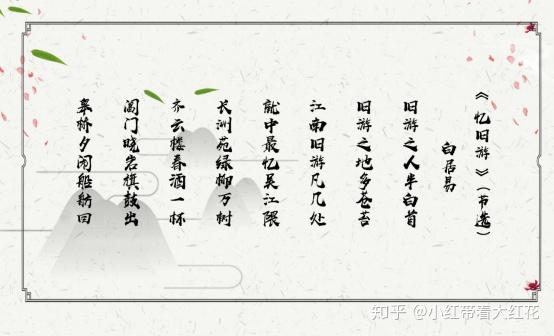 《忆旧游》(节选)
白居易
旧游之人半白首
旧游之地多苍苔
江南旧游凡几处
就中最忆吴江隈
长洲苑绿柳万树
齐云楼春酒一杯
阊门晓岩旗鼓出
皋桥夕闹船舫回
知乎 @小红带着大红花